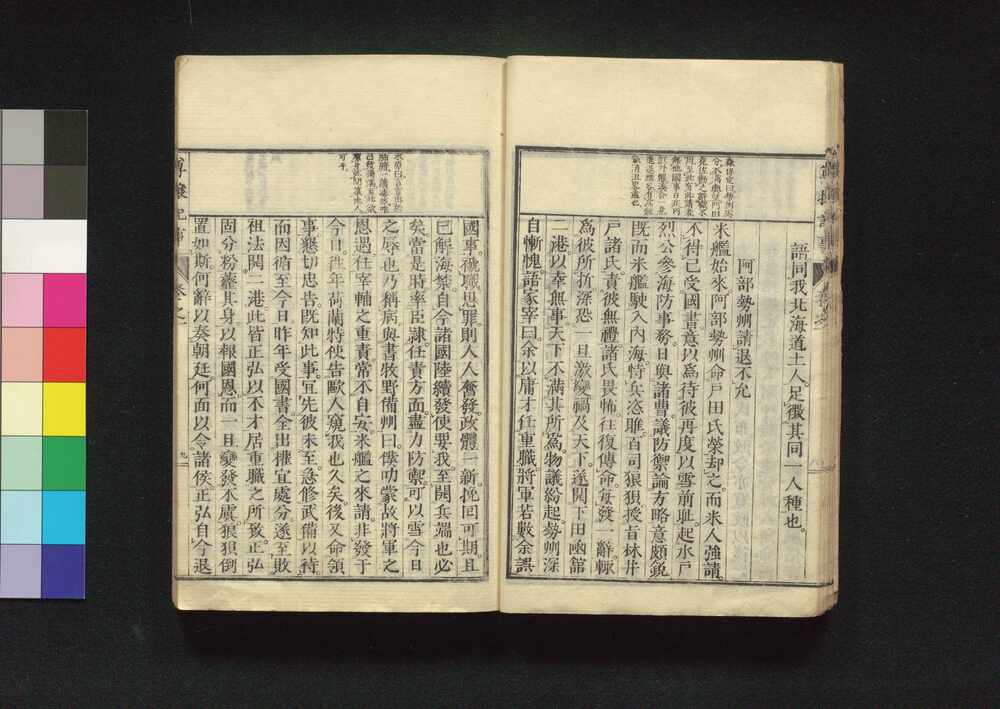 語同我北海道土人。足徵其同一人種也。
阿部勢州請退不允
米艦始來阿部勢州命戸田氏榮却之。而米人強請。
不得已受國書意以爲待彼再度以雪前耻。起水戸
烈公參海防事務。日與諸曹議防禦論方略意頗鋭
既而米艦駛入内海特兵恣睢百司狼狽授旨林井
戸諸氏責彼無禮諸氏畏怖往復傳命。每發一辭輙
爲彼所折深恐一旦激變禍及天下。遂開下田凾館
二港以幸無事。天下不滿其所爲。物議紛起。勢州深
自慚愧。語家宰曰。余以庸才任重職將軍若數余誤
國事。穢職思罪則人人奮發。政體一新。挽回可期。且
已解海禁。自今諸國陸續發使要我。至開兵端也必
矣。當是時率臣隷任責方面盡力防禦。可以雪今日
之辱也乃稱病。與書牧野備州曰。僕叨蒙故將軍之
恩遇任宰輔之重責。常不自安。米艦之來請非發于
今日。往年荷蘭特使告歐人窺我也久矣。後又命領
事懇切忠告。既知此事。宜先彼未至急修武備以待
而因循至今日昨年受國書全出權宜處分遂至敗
祖法開二港此皆正弘以不才居重職之所致正弘
固分粉虀其身以報國恩。而一旦變發不虞。狼狽倒
置如斯。何辭以奏朝廷何面以令諸侯正弘自今退
卷之一
九